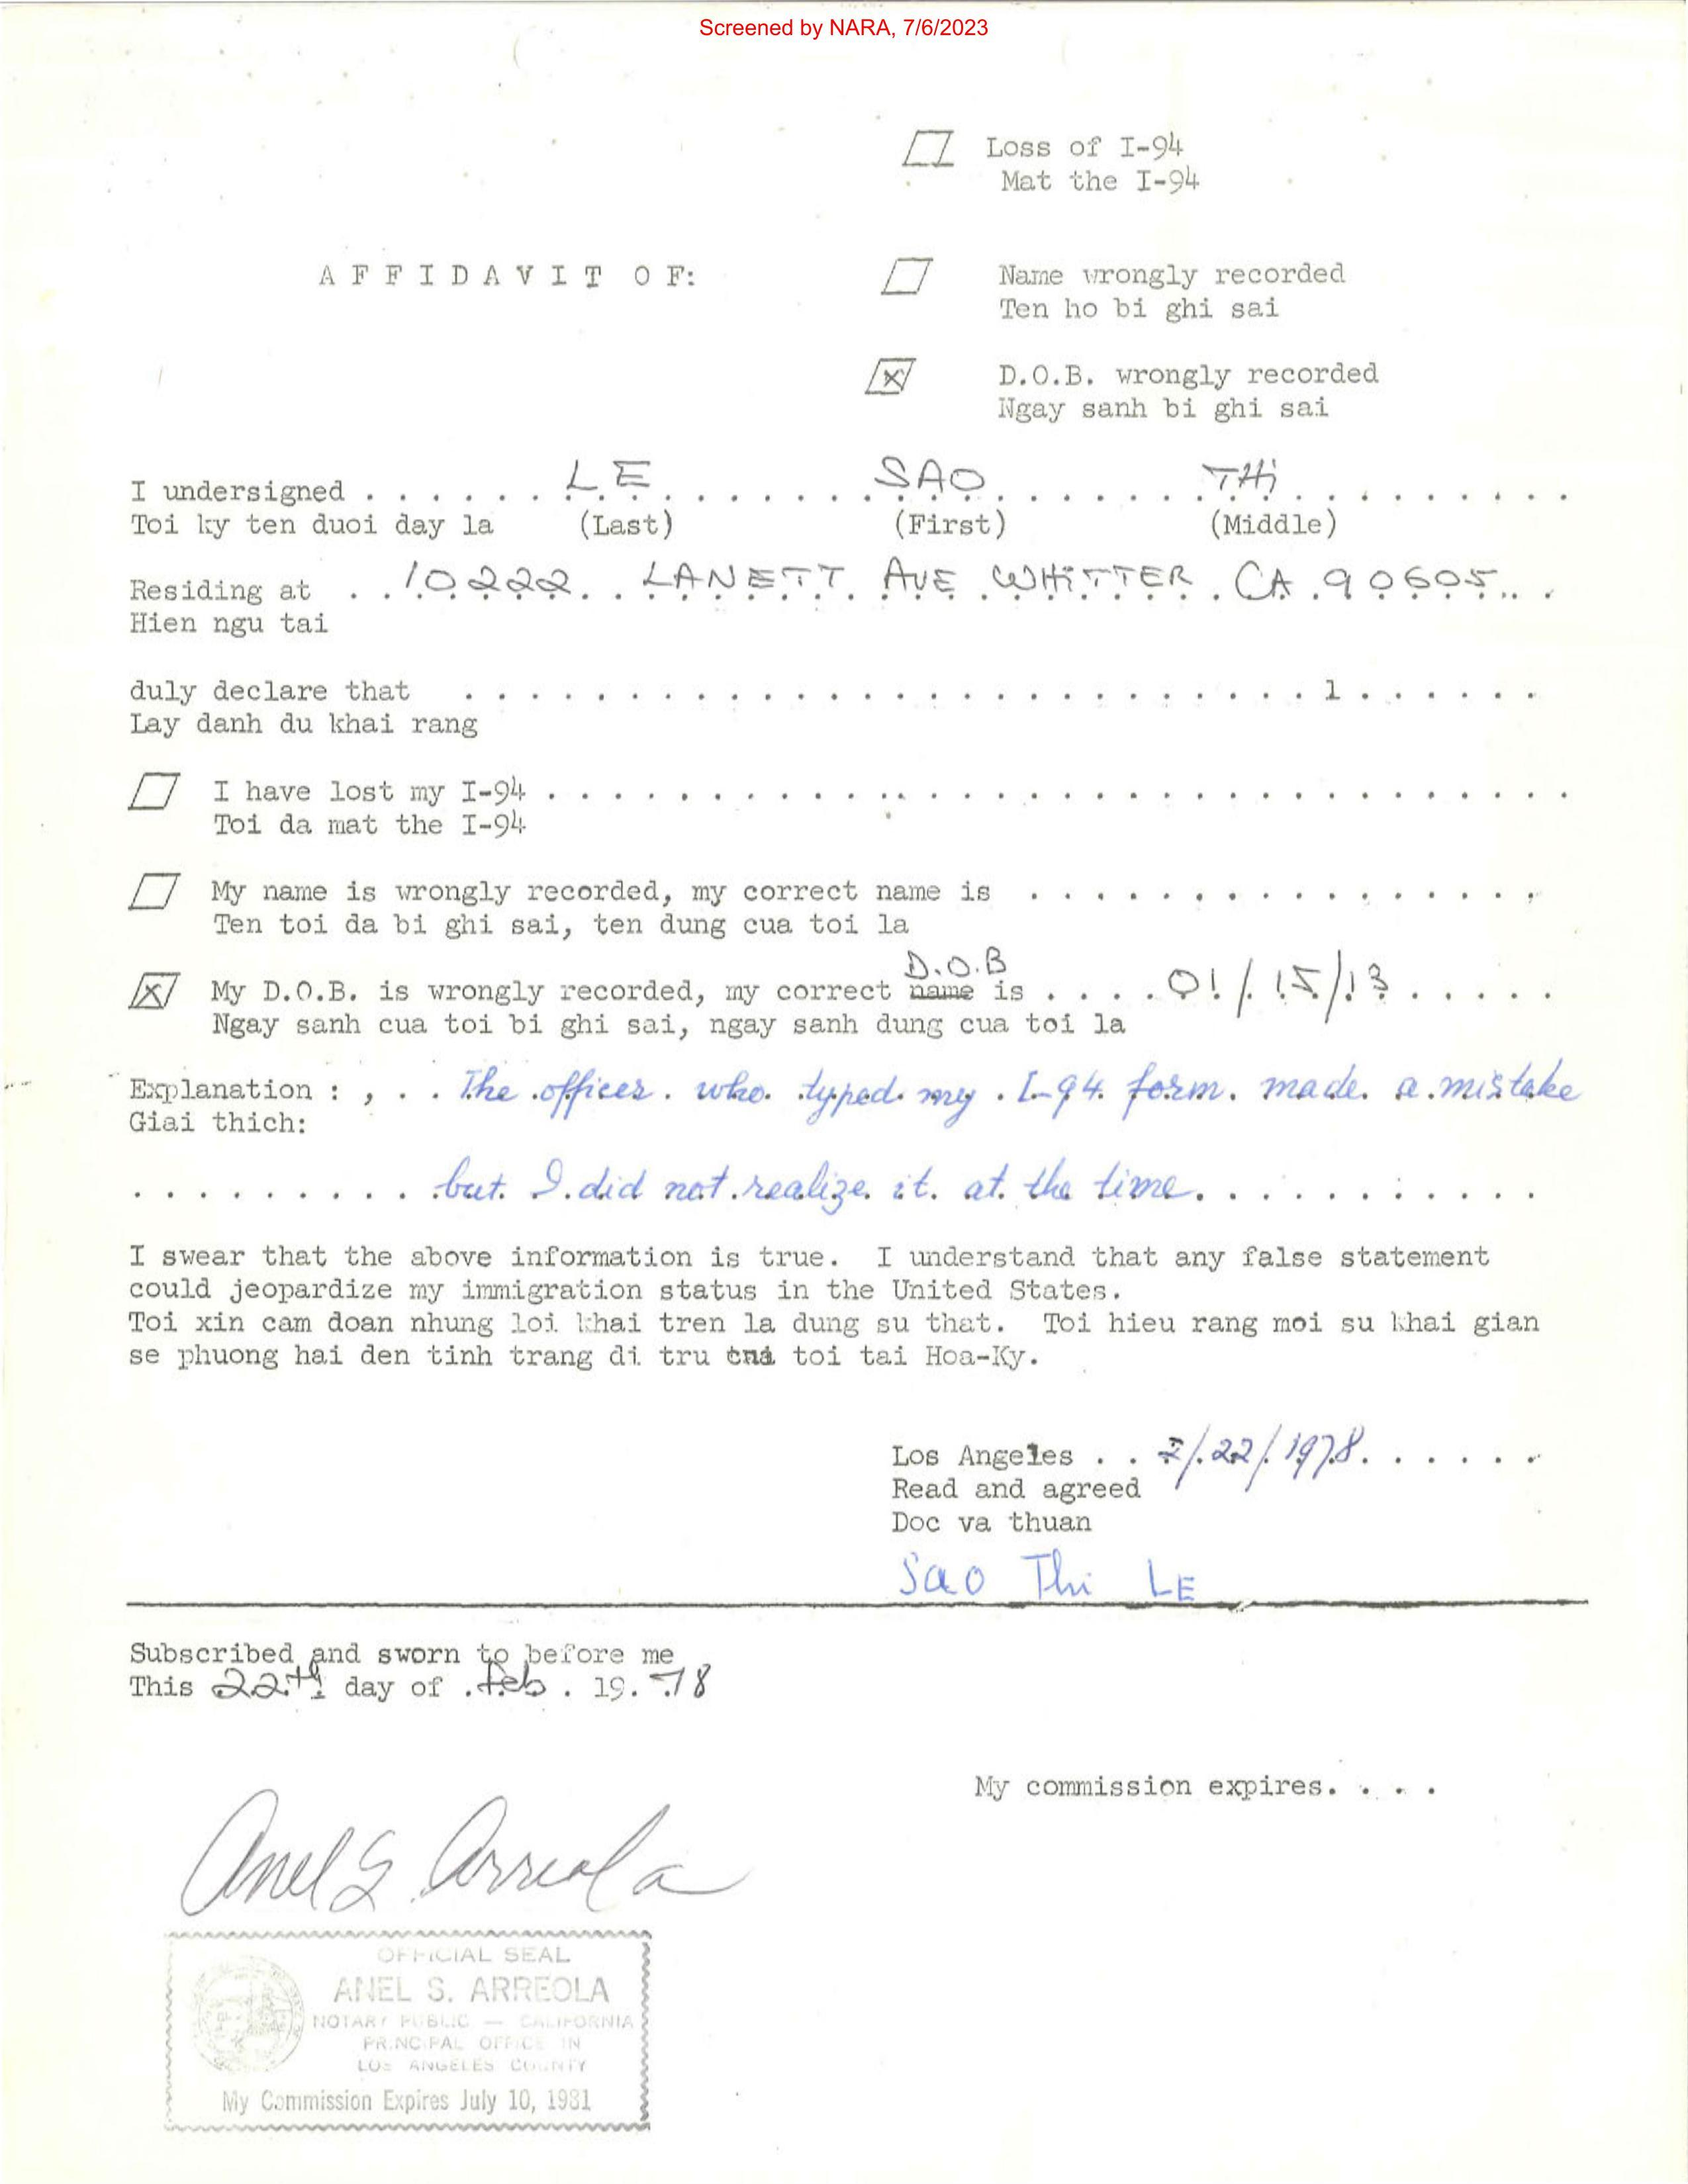 Screened by NARA, 7/6/2023
Loss of I-94
Mat the I-94
AFFIDAVIT OF:
Name wrongly recorded
Ten ho bi ghi sai
X D.O.B. wrongly recorded
Ngay sanh bi ghi sai
I undersigned . . . . . . LE . . . . . . SAO . . . . . . THi . . . . . . . .
Toi ky ten duoi day la (Last) (First) (Middle)
Residing at . . 10222 . . LANETT. AVE WHiTTER . CA . 90605 . . .
Hien ngu tai
duly declare that . . . . . . . . . . . . . . . . . . . . . . . . . . 1 . . . . . .
Lay danh du khai rang
I have lost my I-94 . . . . . . . . . . . . . . . . . . . . . . . . . . . . . . .
Toi da mat the I-94
My name is wrongly recorded, my correct name is . . . . . . . . . . . . . . . .
Ten toi da bi ghi sai, ten dung cua toi la
D.O.B
X My D.O.B. is wrongly recorded, my correct name is . . . . 01/15/13 . . . . .
Ngay sanh cua toi bi ghi sai, ngay sanh dung cua toi la
Explanation : , . . The officer who typed my I-94 form made a mistake
Giai thich:
. . . . . . . . . but I did not realize it at the time. . . . . . . . . . .
I swear that the above information is true. I understand that any false statement
could jeopardize my immigration status in the United States.
Toi xin cam doan nhung loi khai tren la dung su that. Toi hieu rang moi su khai gian
se phuong hai den tinh trang di tru toi tai Hoa-Ky.
Los Angeles . . 2/22/1978 . . . . . .
Read and agreed
Doc va thuan
Sao Thi LE
Subscribed and sworn to before me
This 22th day of . Feb . 19. 78
My commission expires. . . .
Anel S. Arreola
OFFICIAL SEAL
ANEL S. ARREOLA
NOTARY PUBLIC — CALIFORNIA
PRINCIPAL OFFICE IN
LOS ANGELES COUNTY
My Commission Expires July 10, 1981